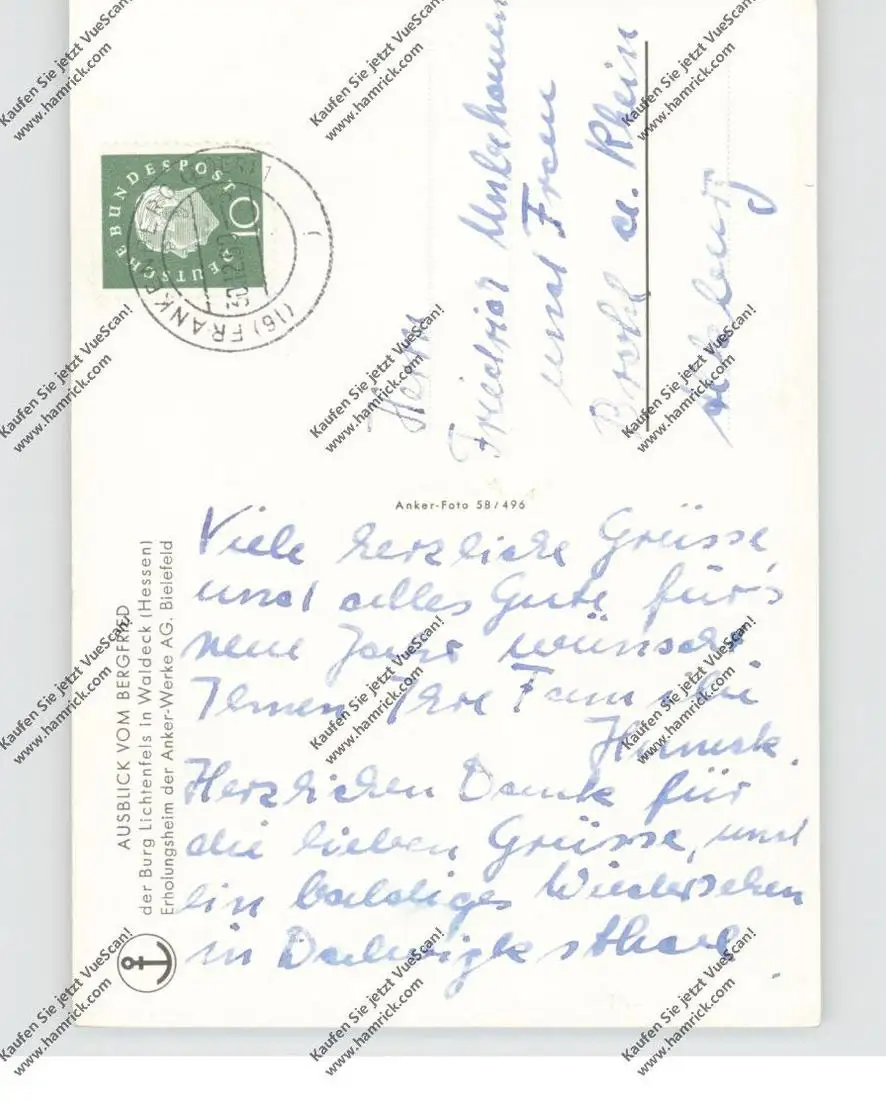 DEUTSCHE BUNDESPOST
10
(16) FRANKENBERG (EDER)
30.12.60
Herrn
Friedrich
und Frau
Brohl a. Rhein
Anker-Foto 58/496
Viele herzliche Grüsse,
und alles Gute für's
neue Jahr wünscht
Ihnen Ihre Familie
Herzlichen Dank für
die lieben Grüsse, und
ein baldiges Wiedersehen
in Dalwigksthal.
AUSBLICK VOM BERGFRIED
der Burg Lichtenfels in Waldeck (Hessen)
Erholungsheim der Anker-Werke AG. Bielefeld
Kaufen Sie jetzt VueScan!
www.hamrick.com